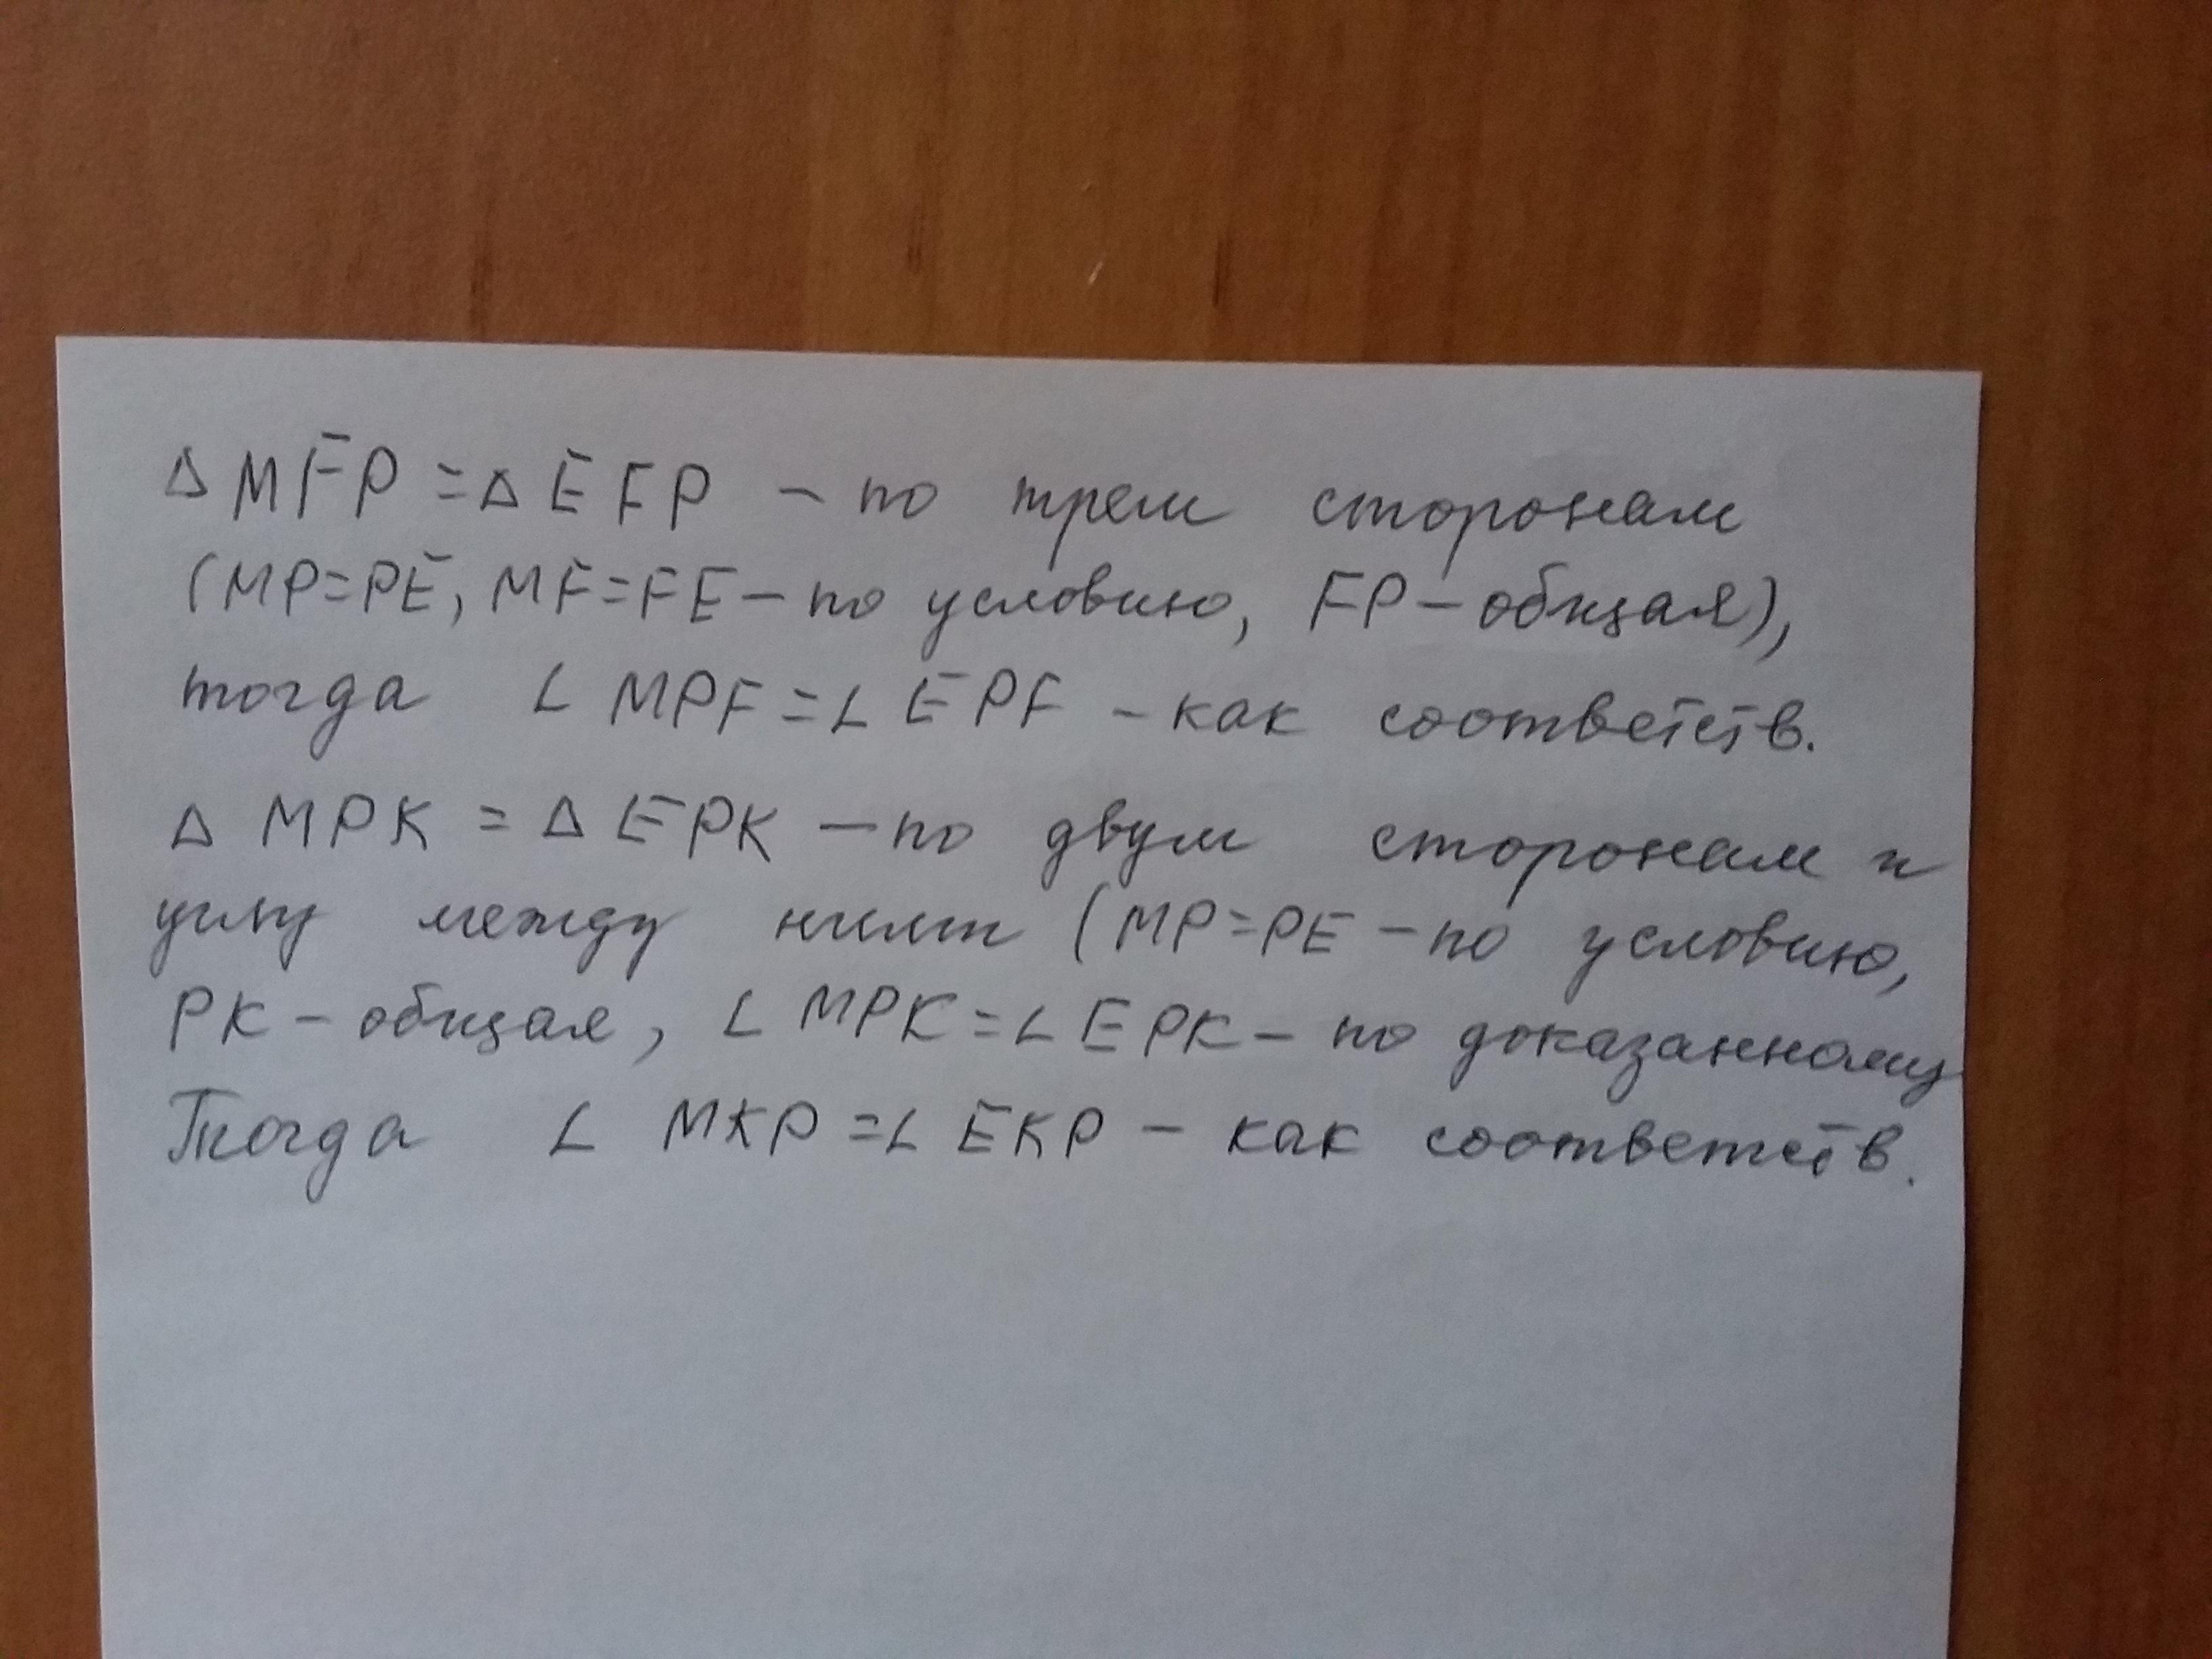 Δ MFP = Δ EFP – по трем сторонам
(MP=PE, MF=FE – по условию, FP – общая),
тогда ∠ MPF = ∠ EPF – как соответств.
Δ MPK = Δ EPK – по двум сторонам и
углу между ними (MP=PE – по условию,
PK – общая, ∠ MPK = ∠ EPK – по доказанному
Тогда ∠ MKP = ∠ EKP – как соответств.